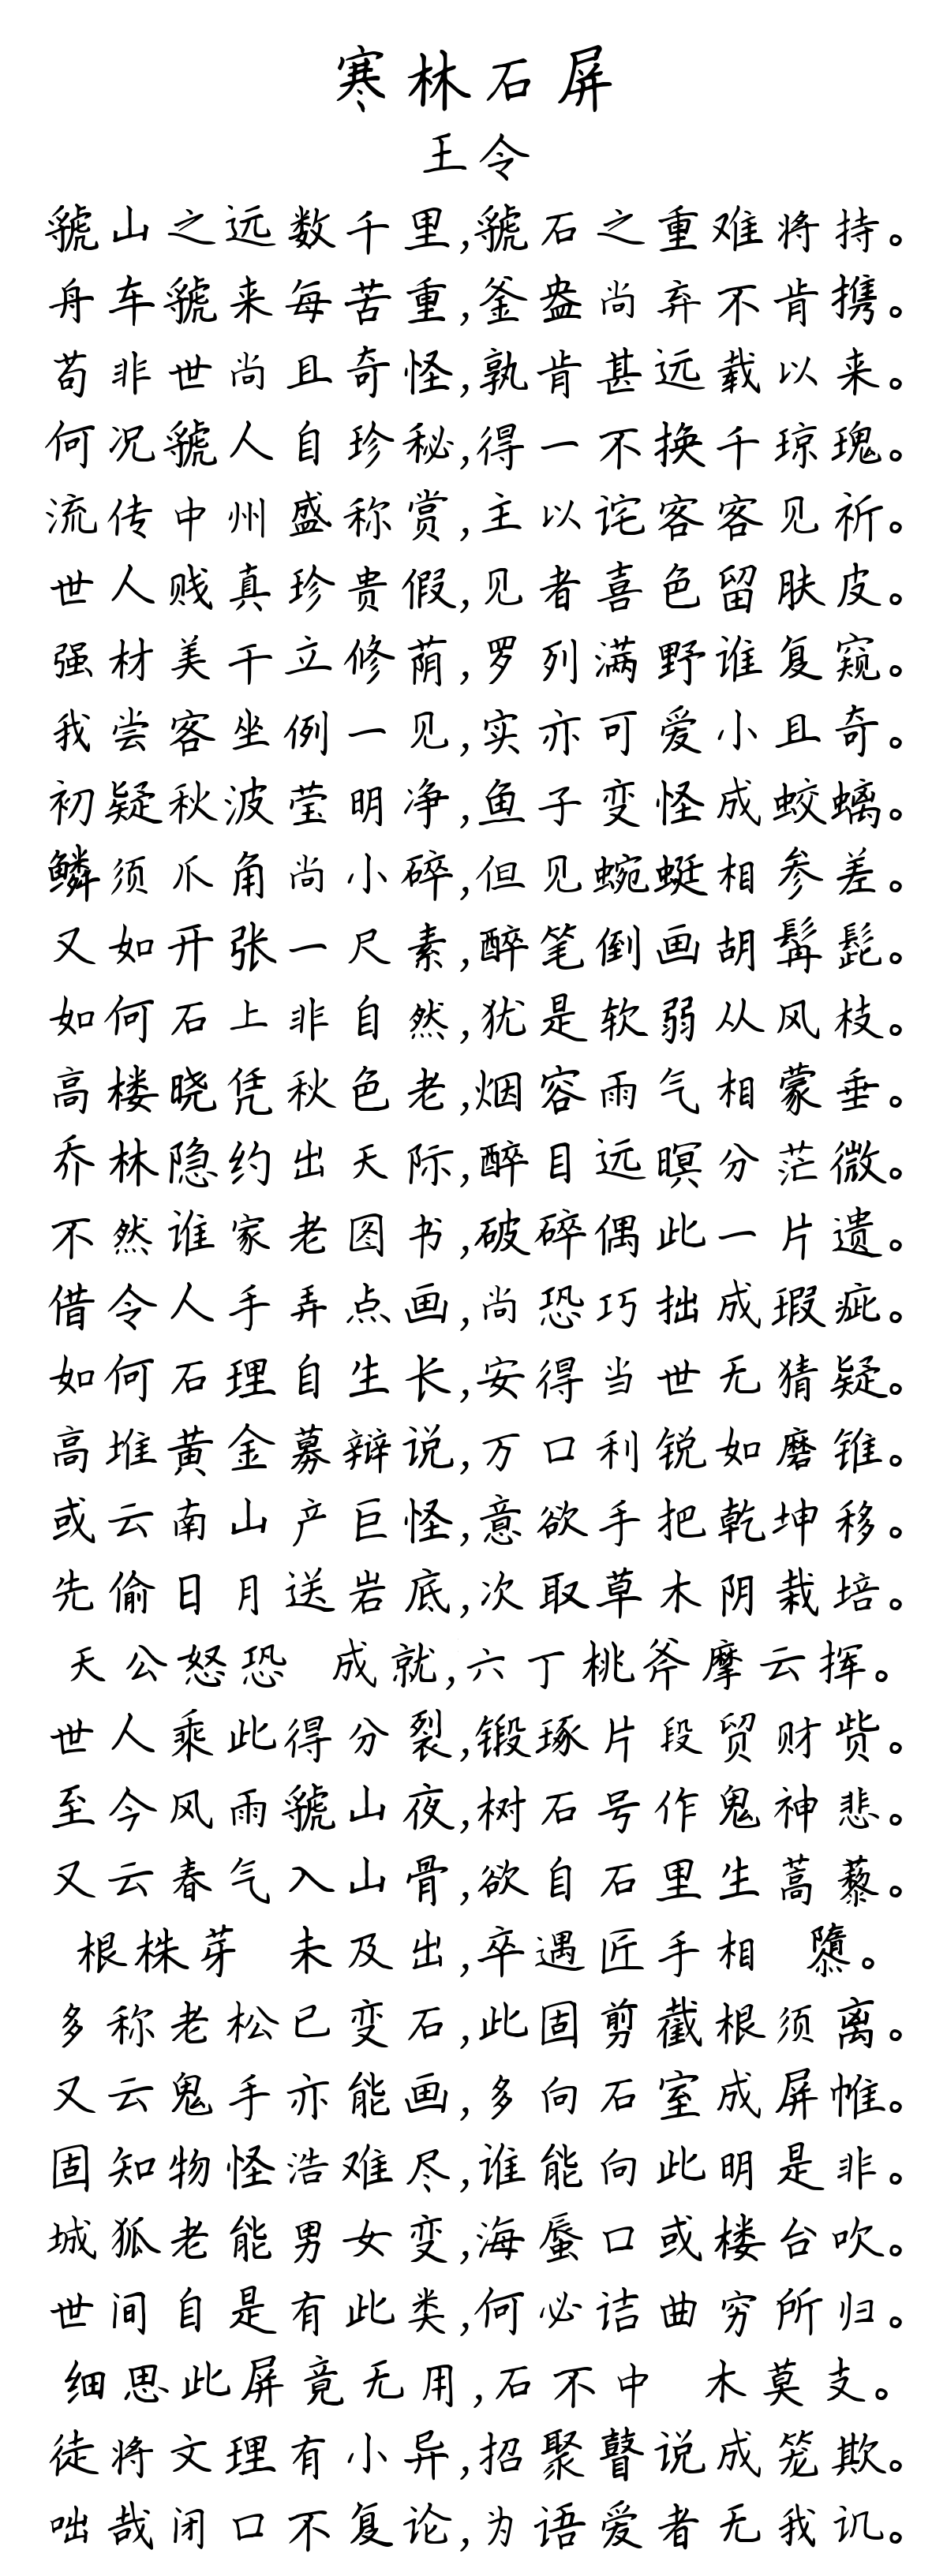 寒林石屏
王令
虢山之远数千里,虢石之重难将持。
舟车虢来每苦重,釜盎尚弃不肯携。
苟非世尚且奇怪,孰肯甚远载以来。
何况虢人自珍秘,得一不换千琼瑰。
流传中州盛称赏,主以诧客客见祈。
世人贱真珍贵假,见者喜色留肤皮。
强材美干立修荫,罗列满野谁复窥。
我尝客坐例一见,实亦可爱小且奇。
初疑秋波莹明净,鱼子变怪成蛟螭。
鳞须爪角尚小碎,但见蜿蜓相参差。
又如开张一尺素,醉笔倒画胡髯髭。
如何石上非自然,犹是软弱从风枝。
高楼晓凭秋色老,烟容雨气相蒙垂。
乔林隐约出天际,醉目远暝分茫微。
不然谁家老图书,破碎偶此一片遗。
借令人手弄点画,尚恐巧拙成瑕疵。
如何石理自生长,安得当世无猜疑。
高堆黄金募辩说,万口利锐如磨锥。
或云南山产巨怪,意欲手把乾坤移。
先偷日月送岩底,次取草木阴栽培。
天公怒恐 成就,六丁桃斧摩云挥。
世人乘此得分裂,锻琢片段贸财赀。
至今风雨虢山夜,树石号作鬼神悲。
又云春气入山骨,欲自石里生蒿藜。
根株芽 未及出,卒遇匠手相 隳。
多称老松已变石,此固剪截根须离。
又云鬼手亦能画,多向石室成屏帷。
固知物怪浩难尽,谁能向此明是非。
城狐老能男女变,海蜃口或楼台吹。
世间自是有此类,何必诘曲穷所归。
细思此屏竟无用,石不中 木莫支。
徒将文理有小异,招聚瞽说成笼欺。
咄哉闭口不复论,为语爱者无我讥。